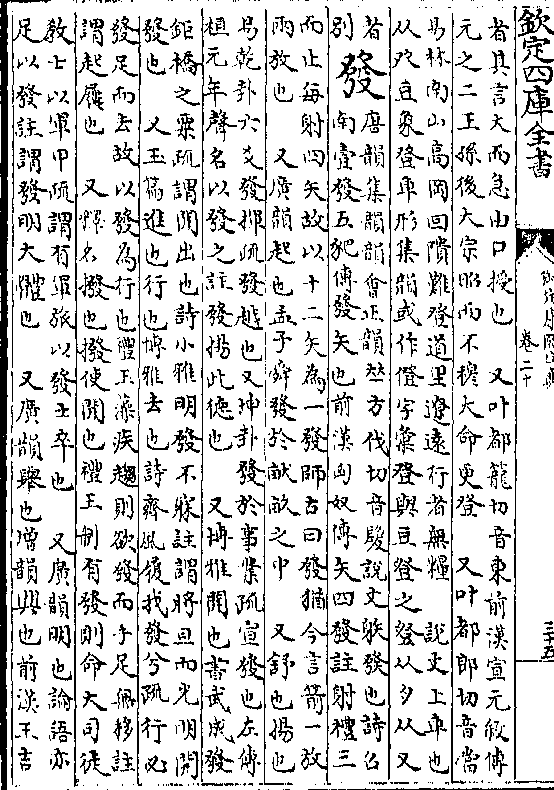 欽定四庫全書
御定康熙字典
卷二十
三十五
者其言大而急由口授也 又叶都籠切音東前漢宣元敘傳
元之二王孫後大宗昭而不穆大命更登 又叶都郎切音當
易林南山高岡回隤難登道里遼遠行者無糧 說文上車也
从癶豆象登車形集韻或作僜字彙登與豆登之豋从夕从又
者
別
發
唐韻集韻韻會正韻𠀤方伐切音髮說文躲發也詩召
南壹發五豝傳發矢也前漢匈奴傳矢四發註射禮三
而止每射四矢故以十二矢為一發師古曰發猶今言箭一放
兩放也 又廣韻起也孟子舜發於畎畝之中 又舒也揚也
易乾卦六爻發揮疏發越也又坤卦發於事業疏宣發也左傳
桓元年聲名以發之註發揚此德也 又博雅開也書武成發
鉅橋之粟疏謂開出也詩小雅明發不寐註謂將旦而光明開
發也 又玉篇進也行也博雅去也詩齊風履我發兮疏行必
發足而去故以發為行也禮玉藻疾趨則欲發而手足無移註
謂起屨也 又釋名撥也撥使開也禮王制有發則命大司徒
教士以軍甲疏謂有軍旅以發士卒也 又廣韻明也論語亦
足以發註謂發明大體也 又廣韻舉也增韻興也前漢王吉